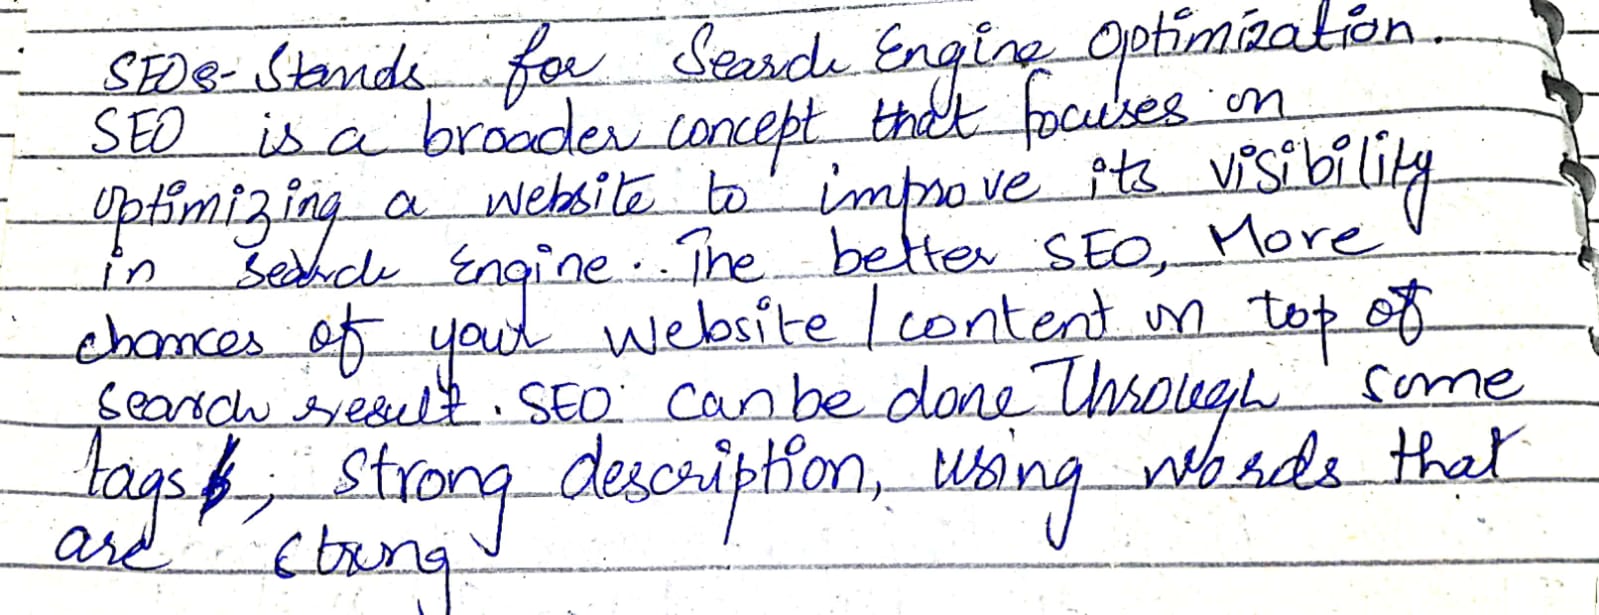 SEO:- Stands for Search Engine Optimization.
SEO is a broader concept that focuses on
optimizing a website to improve its visibility
in search Engine. The better SEO, More
chances of your website/content on top of
search result. SEO can be done Through some
tags, strong description, using words that
are strong